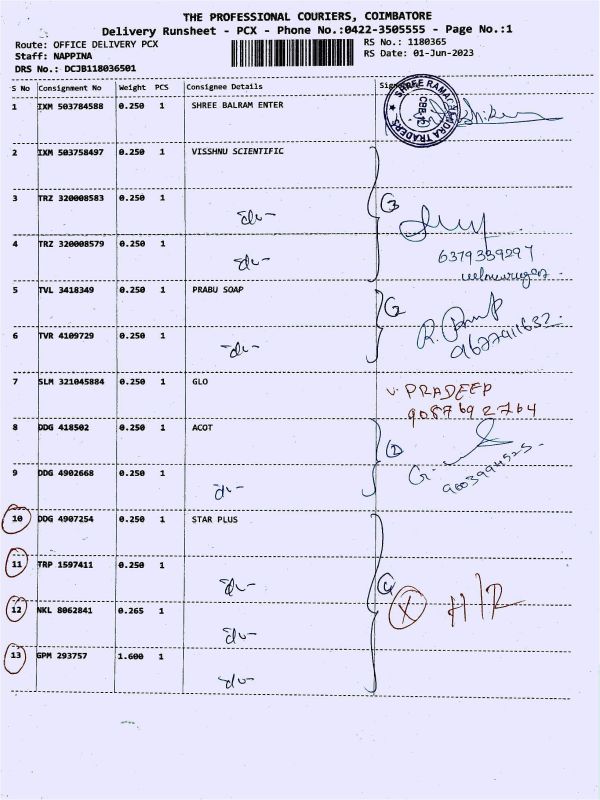 THE PROFESSIONAL COURIERS, COIMBATORE
Delivery Runsheet - PCX - Phone No.:0422-3505555 - Page No.:1
Route: OFFICE DELIVERY PCX
Staff: NAPPINA
DRS No.: DCJB118036501
RS No.: 1180365
RS Date: 01-Jun-2023
S No Consignment No Weight PCS Consignee Details
1 IXM 503784588 0.250 1 SHREE BALRAM ENTER
2 IXM 503758497 0.250 1 VISSHNU SCIENTIFIC
3 TRZ 320008583 0.250 1
4 TRZ 320008579 0.250 1
6379339297
5 TVL 3418349 0.250 1 PRABU SOAP
6 TVR 4109729 0.250 1
9677911632
7 SLM 321045884 0.250 1 GLO
V. PRADEEP
9087692764
8 DDG 418502 0.250 1 ACOT
9 DDG 4902668 0.250 1
9603994525
10 DDG 4907254 0.250 1 STAR PLUS
11 TRP 1597411 0.250 1
12 NKL 8062841 0.265 1
X
13 GPM 293757 1.600 1